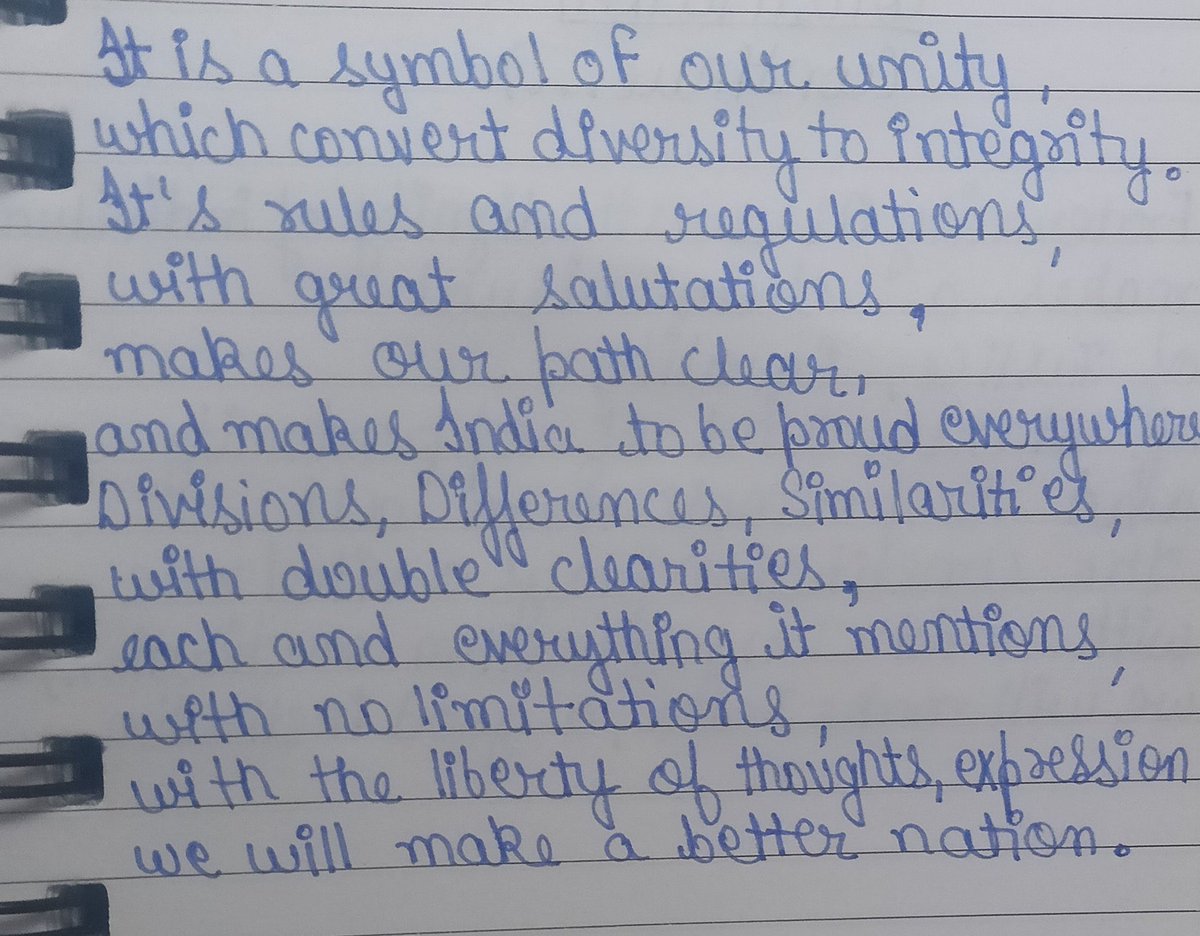 It is a symbol of our unity,
which convert diversity to integrity.
It's rules and regulations,
with great salutations,
makes our path clear,
and makes India to be proud everywhere
Divisions, Differences, Similarities,
with double clearities,
each and everything it mentions,
with no limitations,
with the liberty of thoughts, expression
we will make a better nation.